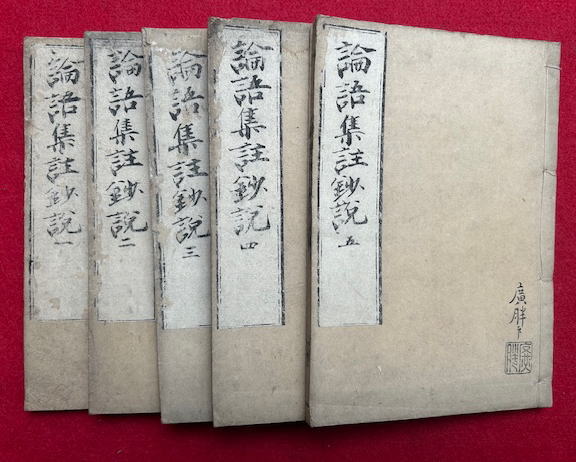 論語集註鈔說 一
論語集註鈔說 二
論語集註鈔說 三
論語集註鈔説 四
論語集註鈔説 五
廣胖